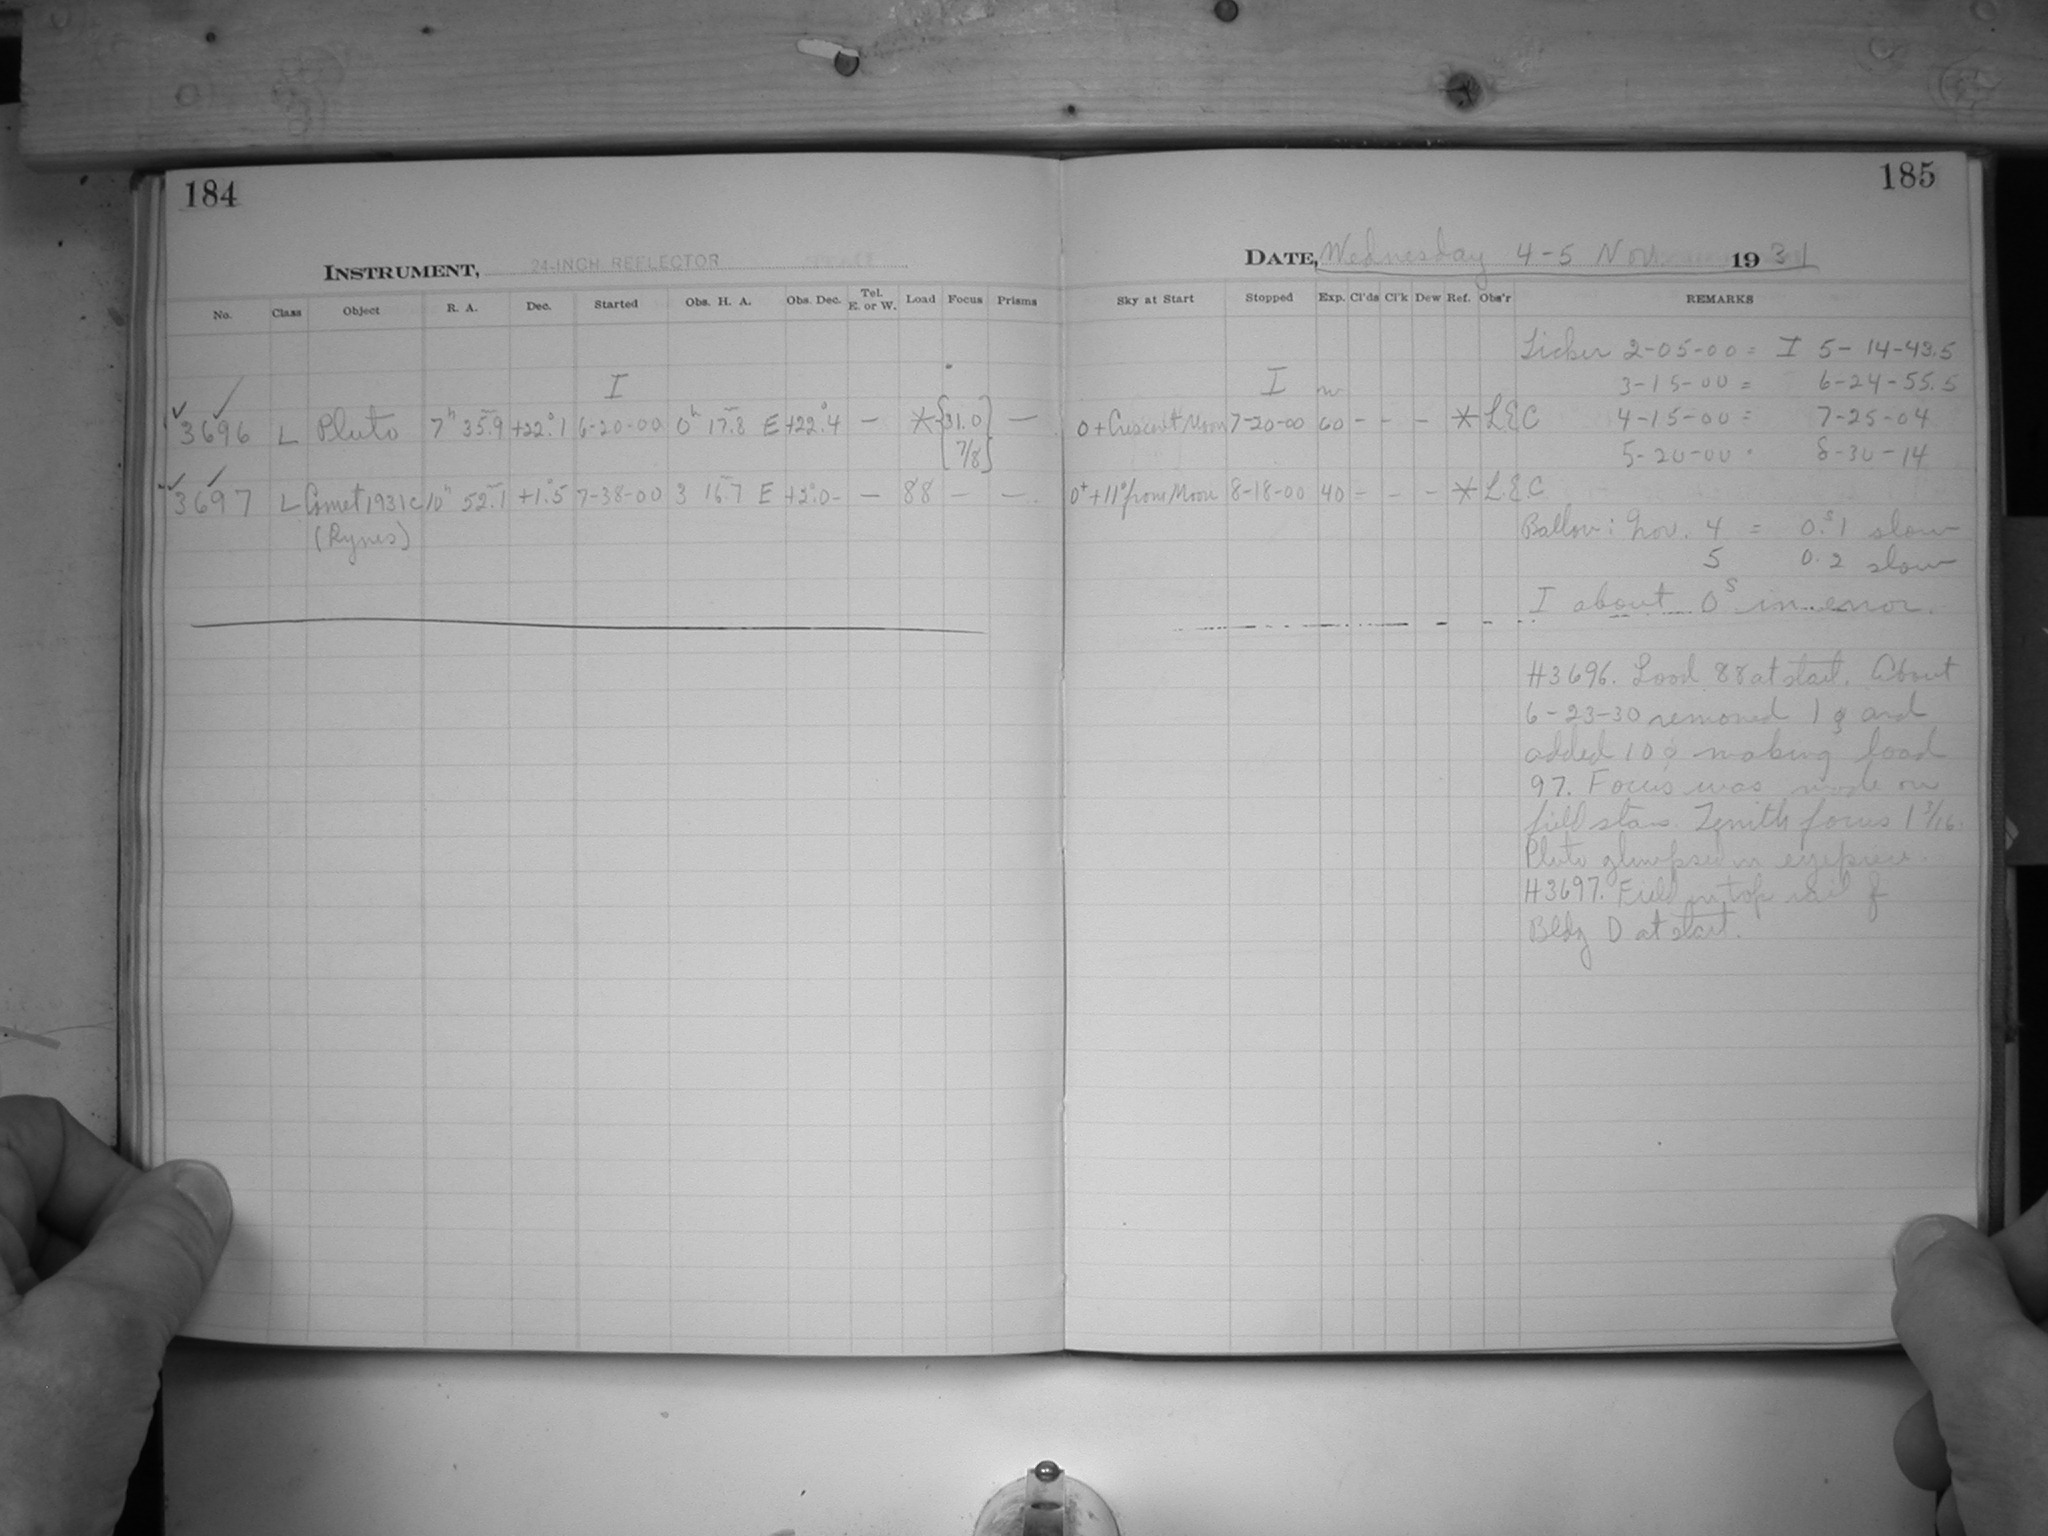 184
INSTRUMENT, 24-INCH REFLECTOR
No. Class Object R. A. Dec. Started Obs. H. A. Obs. Dec. Tel. E. or W. Load Focus Prisms
I
3696 L Pluto 7h 35.9 +22°.1 6-20-00 0h 17.8 E +22°.4 — * {31.0 —
7/8}
3697 L Comet 1931c 10h 52.1 +1°.5 7-38-00 3 16.7 E +2°.0- — 88 — —
(Rynes)
185
DATE, Wednesday 4-5 Nov 1931
Sky at Start Stopped Exp. Cl'ds Cl'k Dew Ref. Obs'r REMARKS
I m
0 + Crescent Moon 7-20-00 60 - - - * L.E.C
0+ +11° from Moon 8-18-00 40 - - - * L.E.C
Ticker 2-05-00 = I 5-14-43.5
3-15-00 = 6-24-55.5
4-15-00 = 7-25-04
5-20-00 8-30-14
Nov. 4 = 0s.1 slow
5 0.2 slow
I about 0s in error.
H3696. Load 88 at start. About
6-23-30 removed 1g and
added 10g making load
97. Focus was made on
field stars. Zenith focus 1 3/16.
Pluto glimpsed in eyepiece.
H3697. Field on top rail of
Bldg D at start.